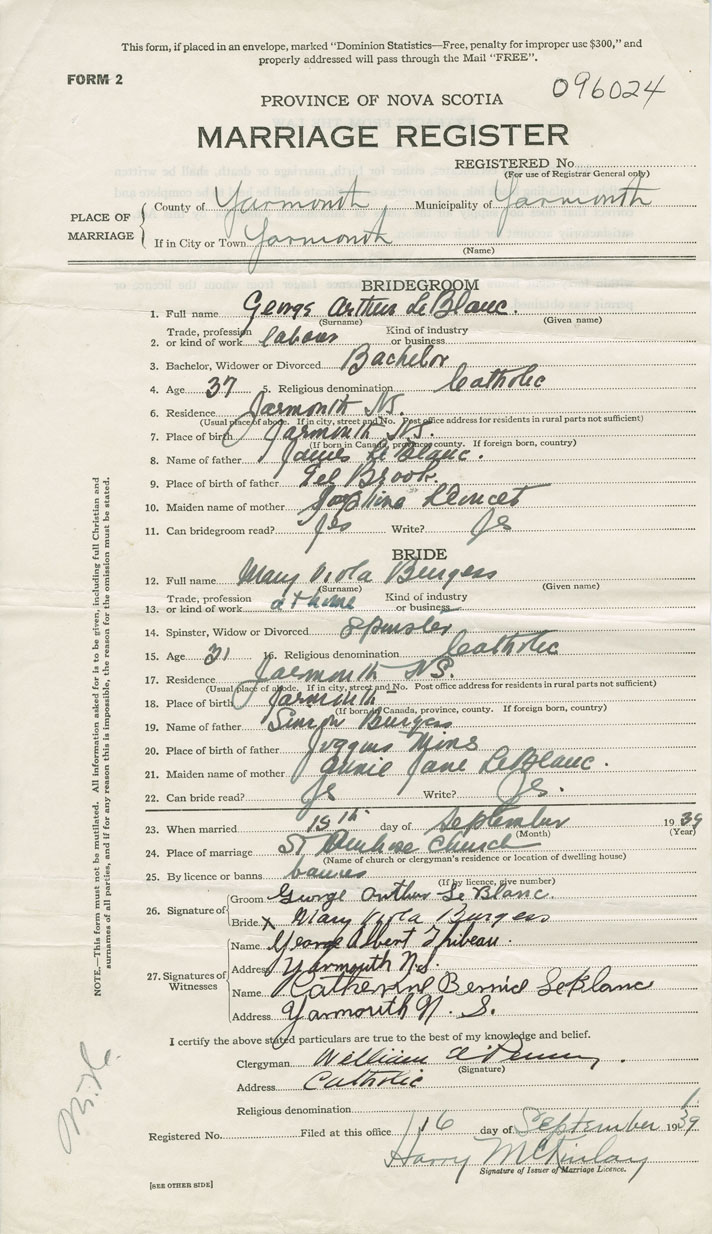 This form, if placed in an envelope, marked "Dominion Statistics—Free, penalty for improper use $300," and
properly addressed will pass through the Mail "FREE".
FORM 2
096024
PROVINCE OF NOVA SCOTIA
MARRIAGE REGISTER
REGISTERED No.
(For use of Registrar General only)
PLACE OF MARRIAGE
County of Yarmouth Municipality of Yarmouth
If in City or Town Yarmouth
(Name)
BRIDEGROOM
1. Full name George Arthur LeBlanc.
(Surname) (Given name)
2. Trade, profession or kind of work labour Kind of industry or business
3. Bachelor, Widower or Divorced Bachelor
4. Age 37 5. Religious denomination Catholic
6. Residence Yarmouth NS.
(Usual place of abode. If in city, street and No. Post office address for residents in rural parts not sufficient)
7. Place of birth Yarmouth NS.
(If born in Canada, province, county. If foreign born, country)
8. Name of father James LeBlanc.
9. Place of birth of father Eel Brook.
10. Maiden name of mother Doucet
11. Can bridegroom read? Yes Write? Yes
BRIDE
12. Full name Mary Viola Burgess
(Surname) (Given name)
13. Trade, profession or kind of work at home Kind of industry or business
14. Spinster, Widow or Divorced Spinster
15. Age 31 16. Religious denomination Catholic
17. Residence Yarmouth NS.
(Usual place of abode. If in city, street and No. Post office address for residents in rural parts not sufficient)
18. Place of birth Yarmouth
(If born in Canada, province, county. If foreign born, country)
19. Name of father Simon Burgess
20. Place of birth of father Joggins Mins
21. Maiden name of mother Annie Jane LeBlanc.
22. Can bride read? Yes Write? Yes.
23. When married day of September 1939
(Month) (Year)
24. Place of marriage St Ambrose Church
(Name of church or clergyman's residence or location of dwelling house)
25. By licence or banns
(If by licence, give number)
26. Signature of
Groom George Arthur LeBlanc.
Bride X Mary Viola Burgess
27. Signatures of Witnesses
Name George Albert Thibeau.
Address Yarmouth N.S.
Name Catherine Bernice LeBlanc
Address Yarmouth N. S.
I certify the above stated particulars are true to the best of my knowledge and belief.
Clergyman William
(Signature)
Address Catholic
Religious denomination
Registered No. Filed at this office 116 day of September 1939
Harry McKinlay
Signature of Issuer of Marriage Licence.
[SEE OTHER SIDE]
NOTE.—This form must not be mutilated. All information asked for is to be given, including full Christian and
surnames of all parties, and if for any reason this is impossible, the reason for the omission must be stated.